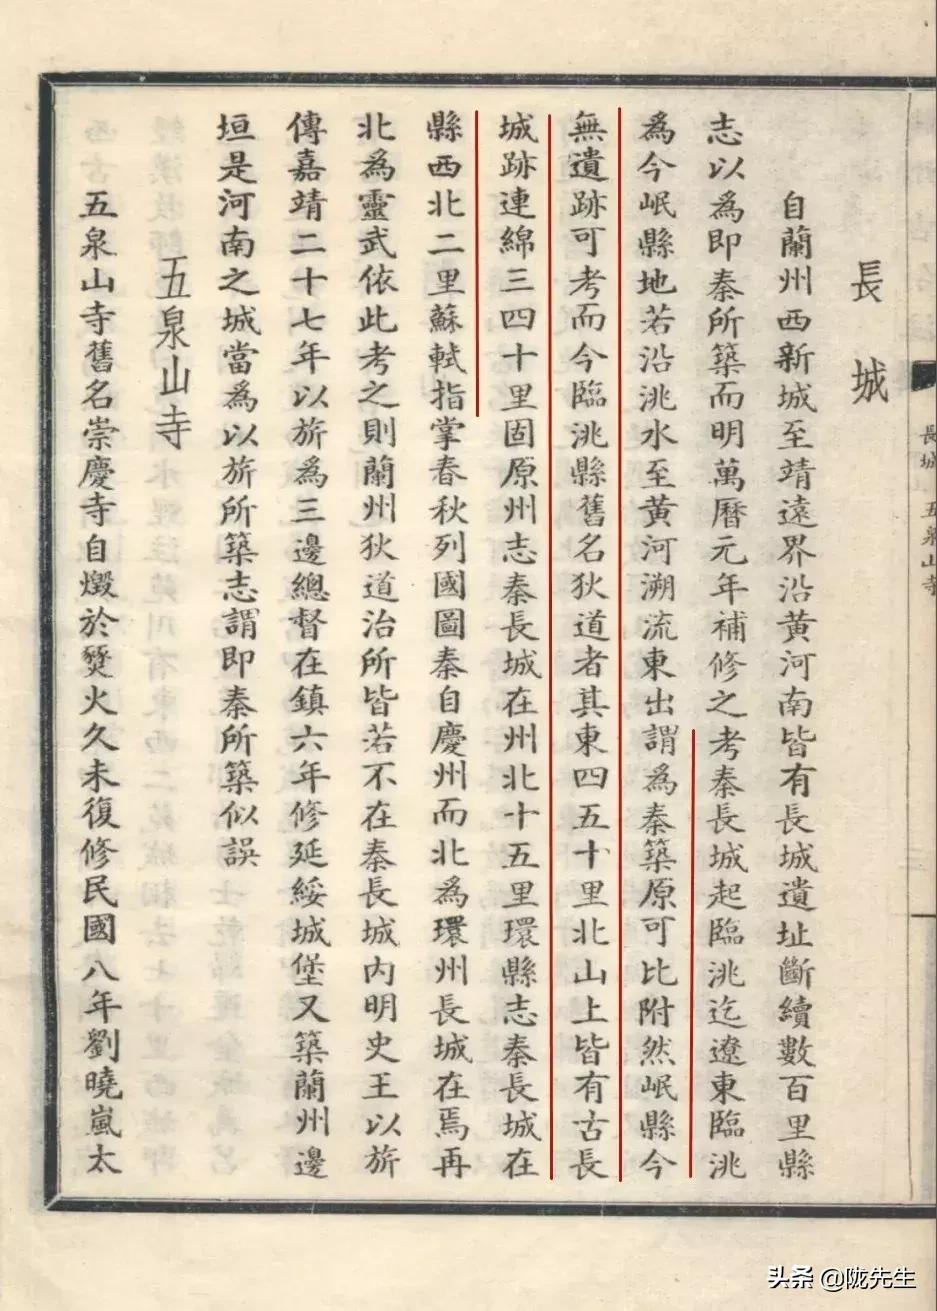 長城
自蘭州西新城至靖遠界沿黄河南皆有長城遺址斷續數百里縣
志以爲即秦所築而明萬曆元年補修之考秦長城起臨洮迄遼東臨洮
爲今岷縣地若沿洮水至黄河溯流東出謂爲秦築原可比附然岷縣今
無遺跡可考而今臨洮縣舊名狄道者其東四五十里北山上皆有古長
城跡連綿三四十里固原州志秦長城在州北十五里環縣志秦長城在
縣西北二里蘇軾指掌春秋列國圖秦自慶州而北爲環州長城在焉再
北爲靈武依此考之則蘭州狄道治所皆若不在秦長城内明史王以旂
傳嘉靖二十七年以旂爲三邊總督在鎮六年修延綏城堡又築蘭州邊
垣是河南之城當爲以旂所築志謂即秦所築似誤
五泉山寺
五泉山寺舊名崇慶寺自燬於燹火久未復修民國八年劉曉嵐太
長城 五泉山寺
头条 @陇先生